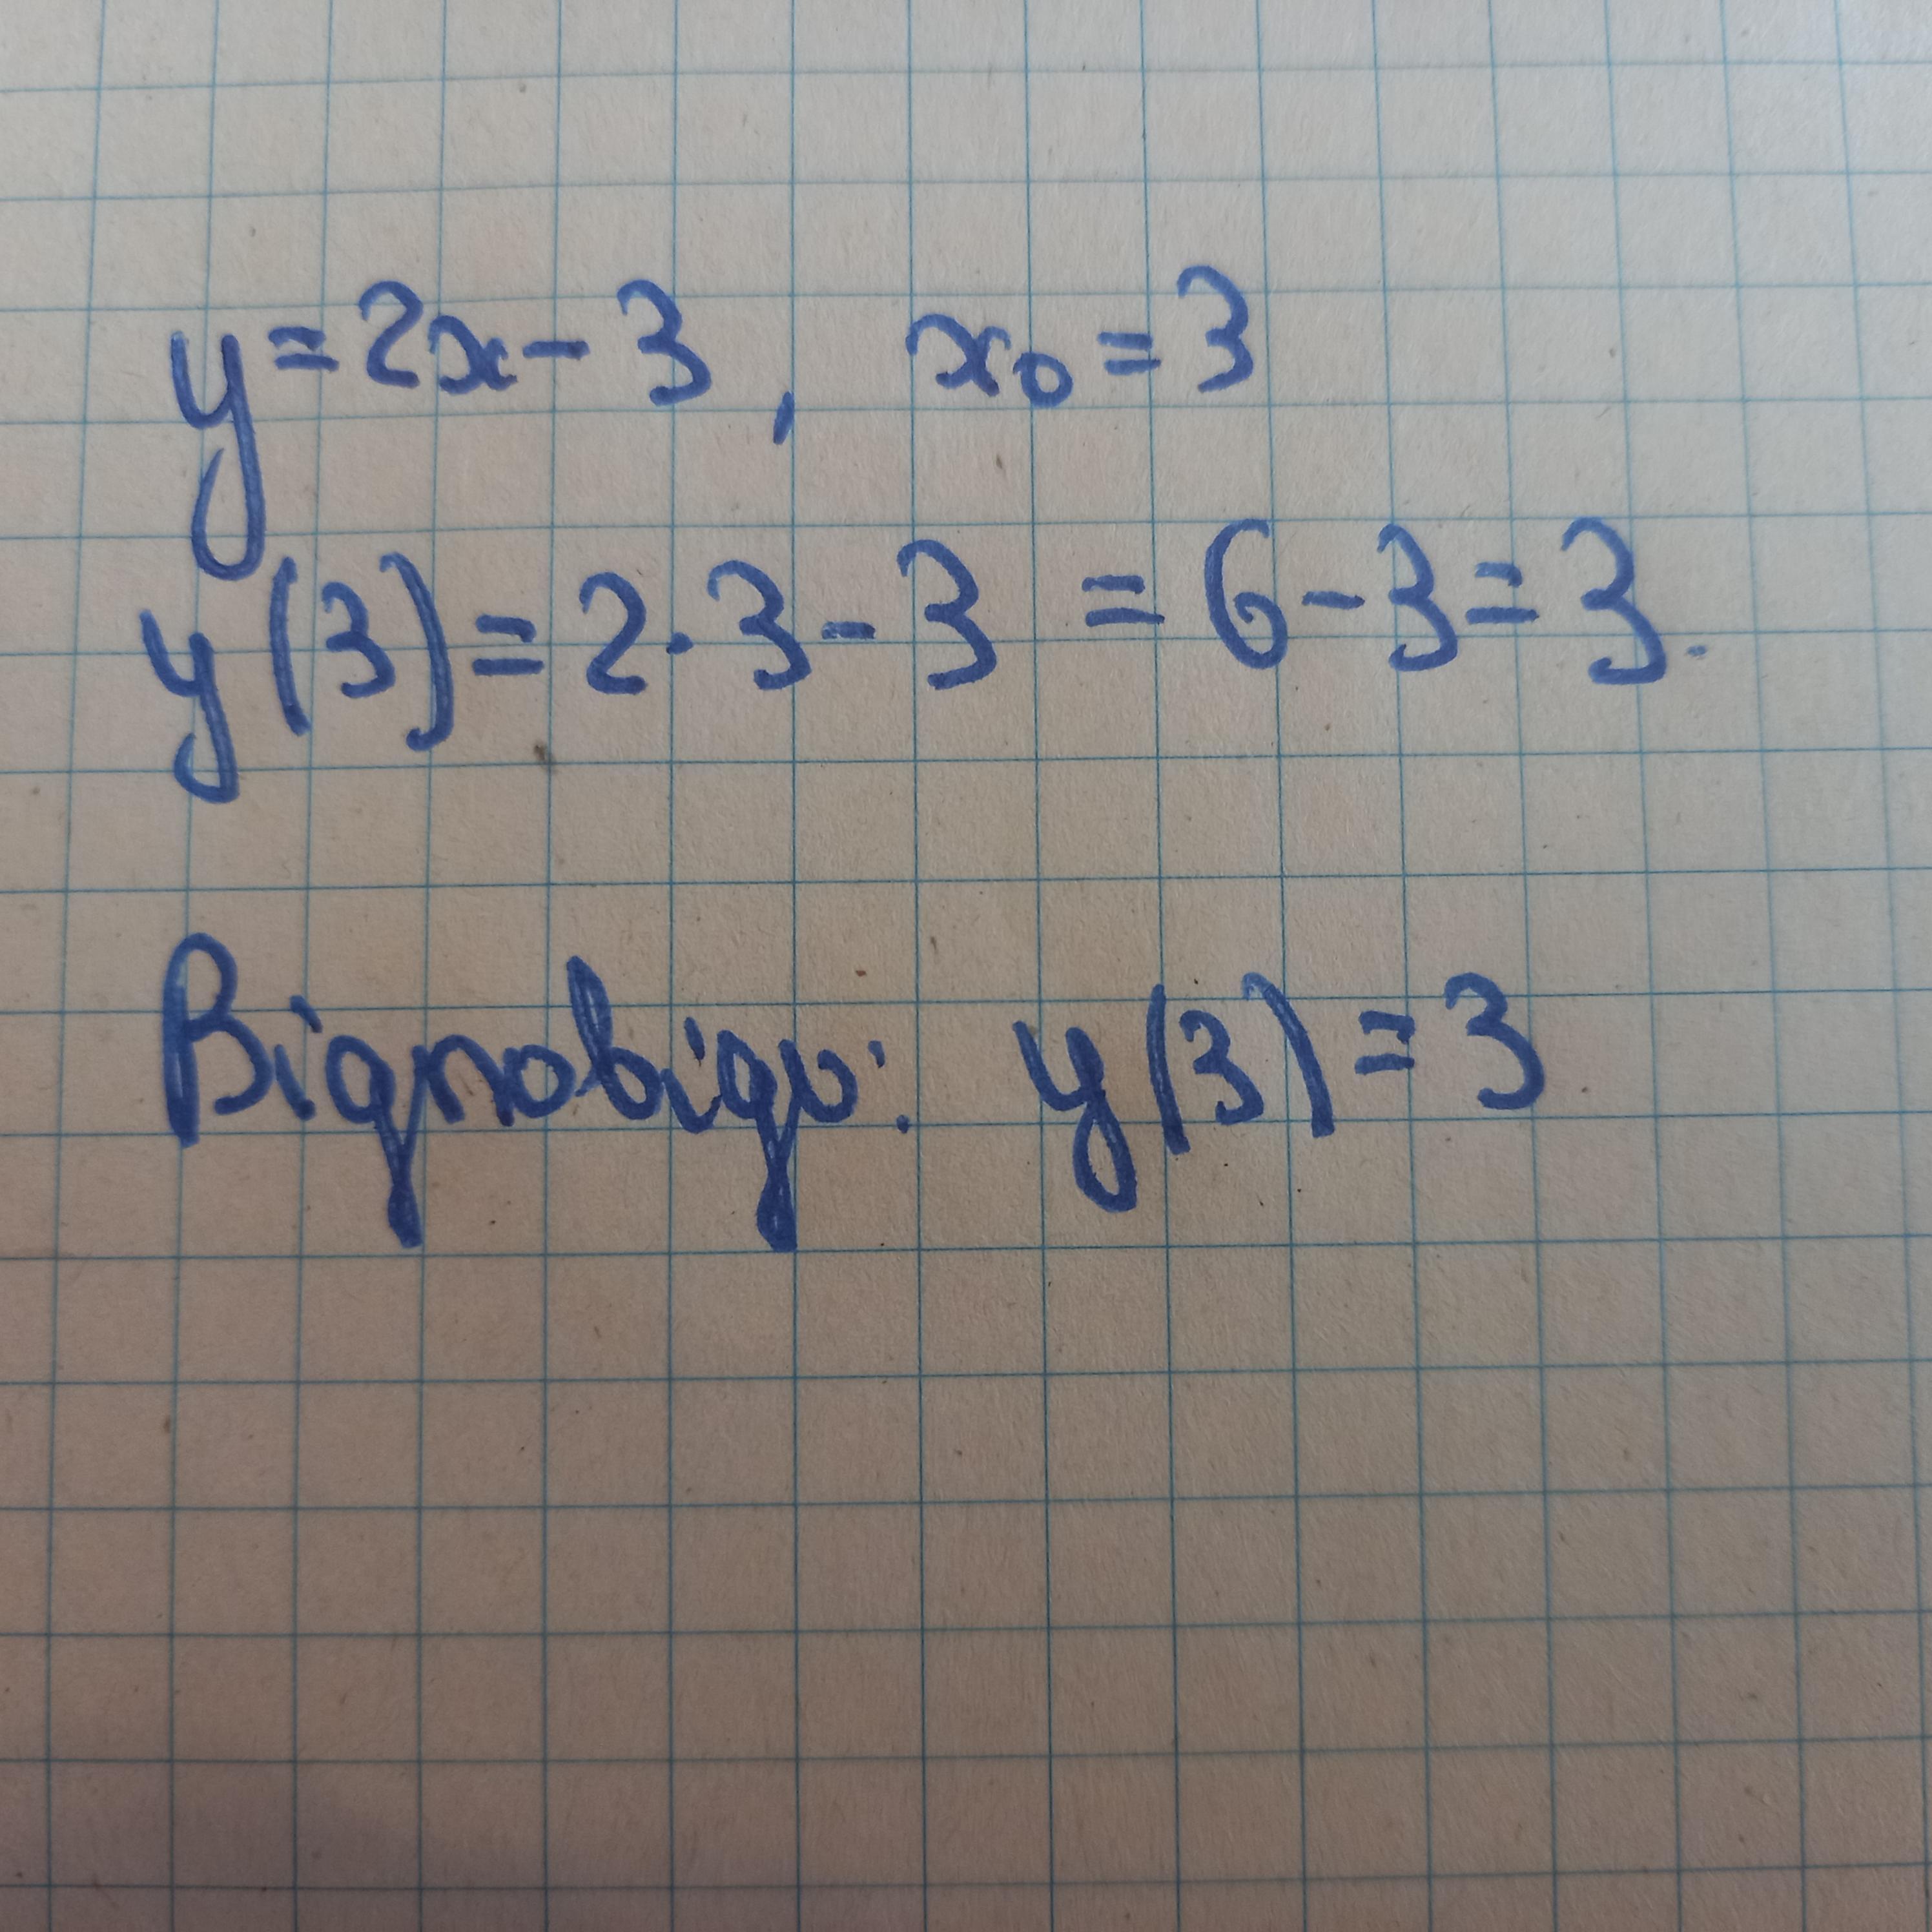 y=2x-3, x₀=3
y(3)=2·3-3 = 6-3=3.
Відповідь: y(3)=3